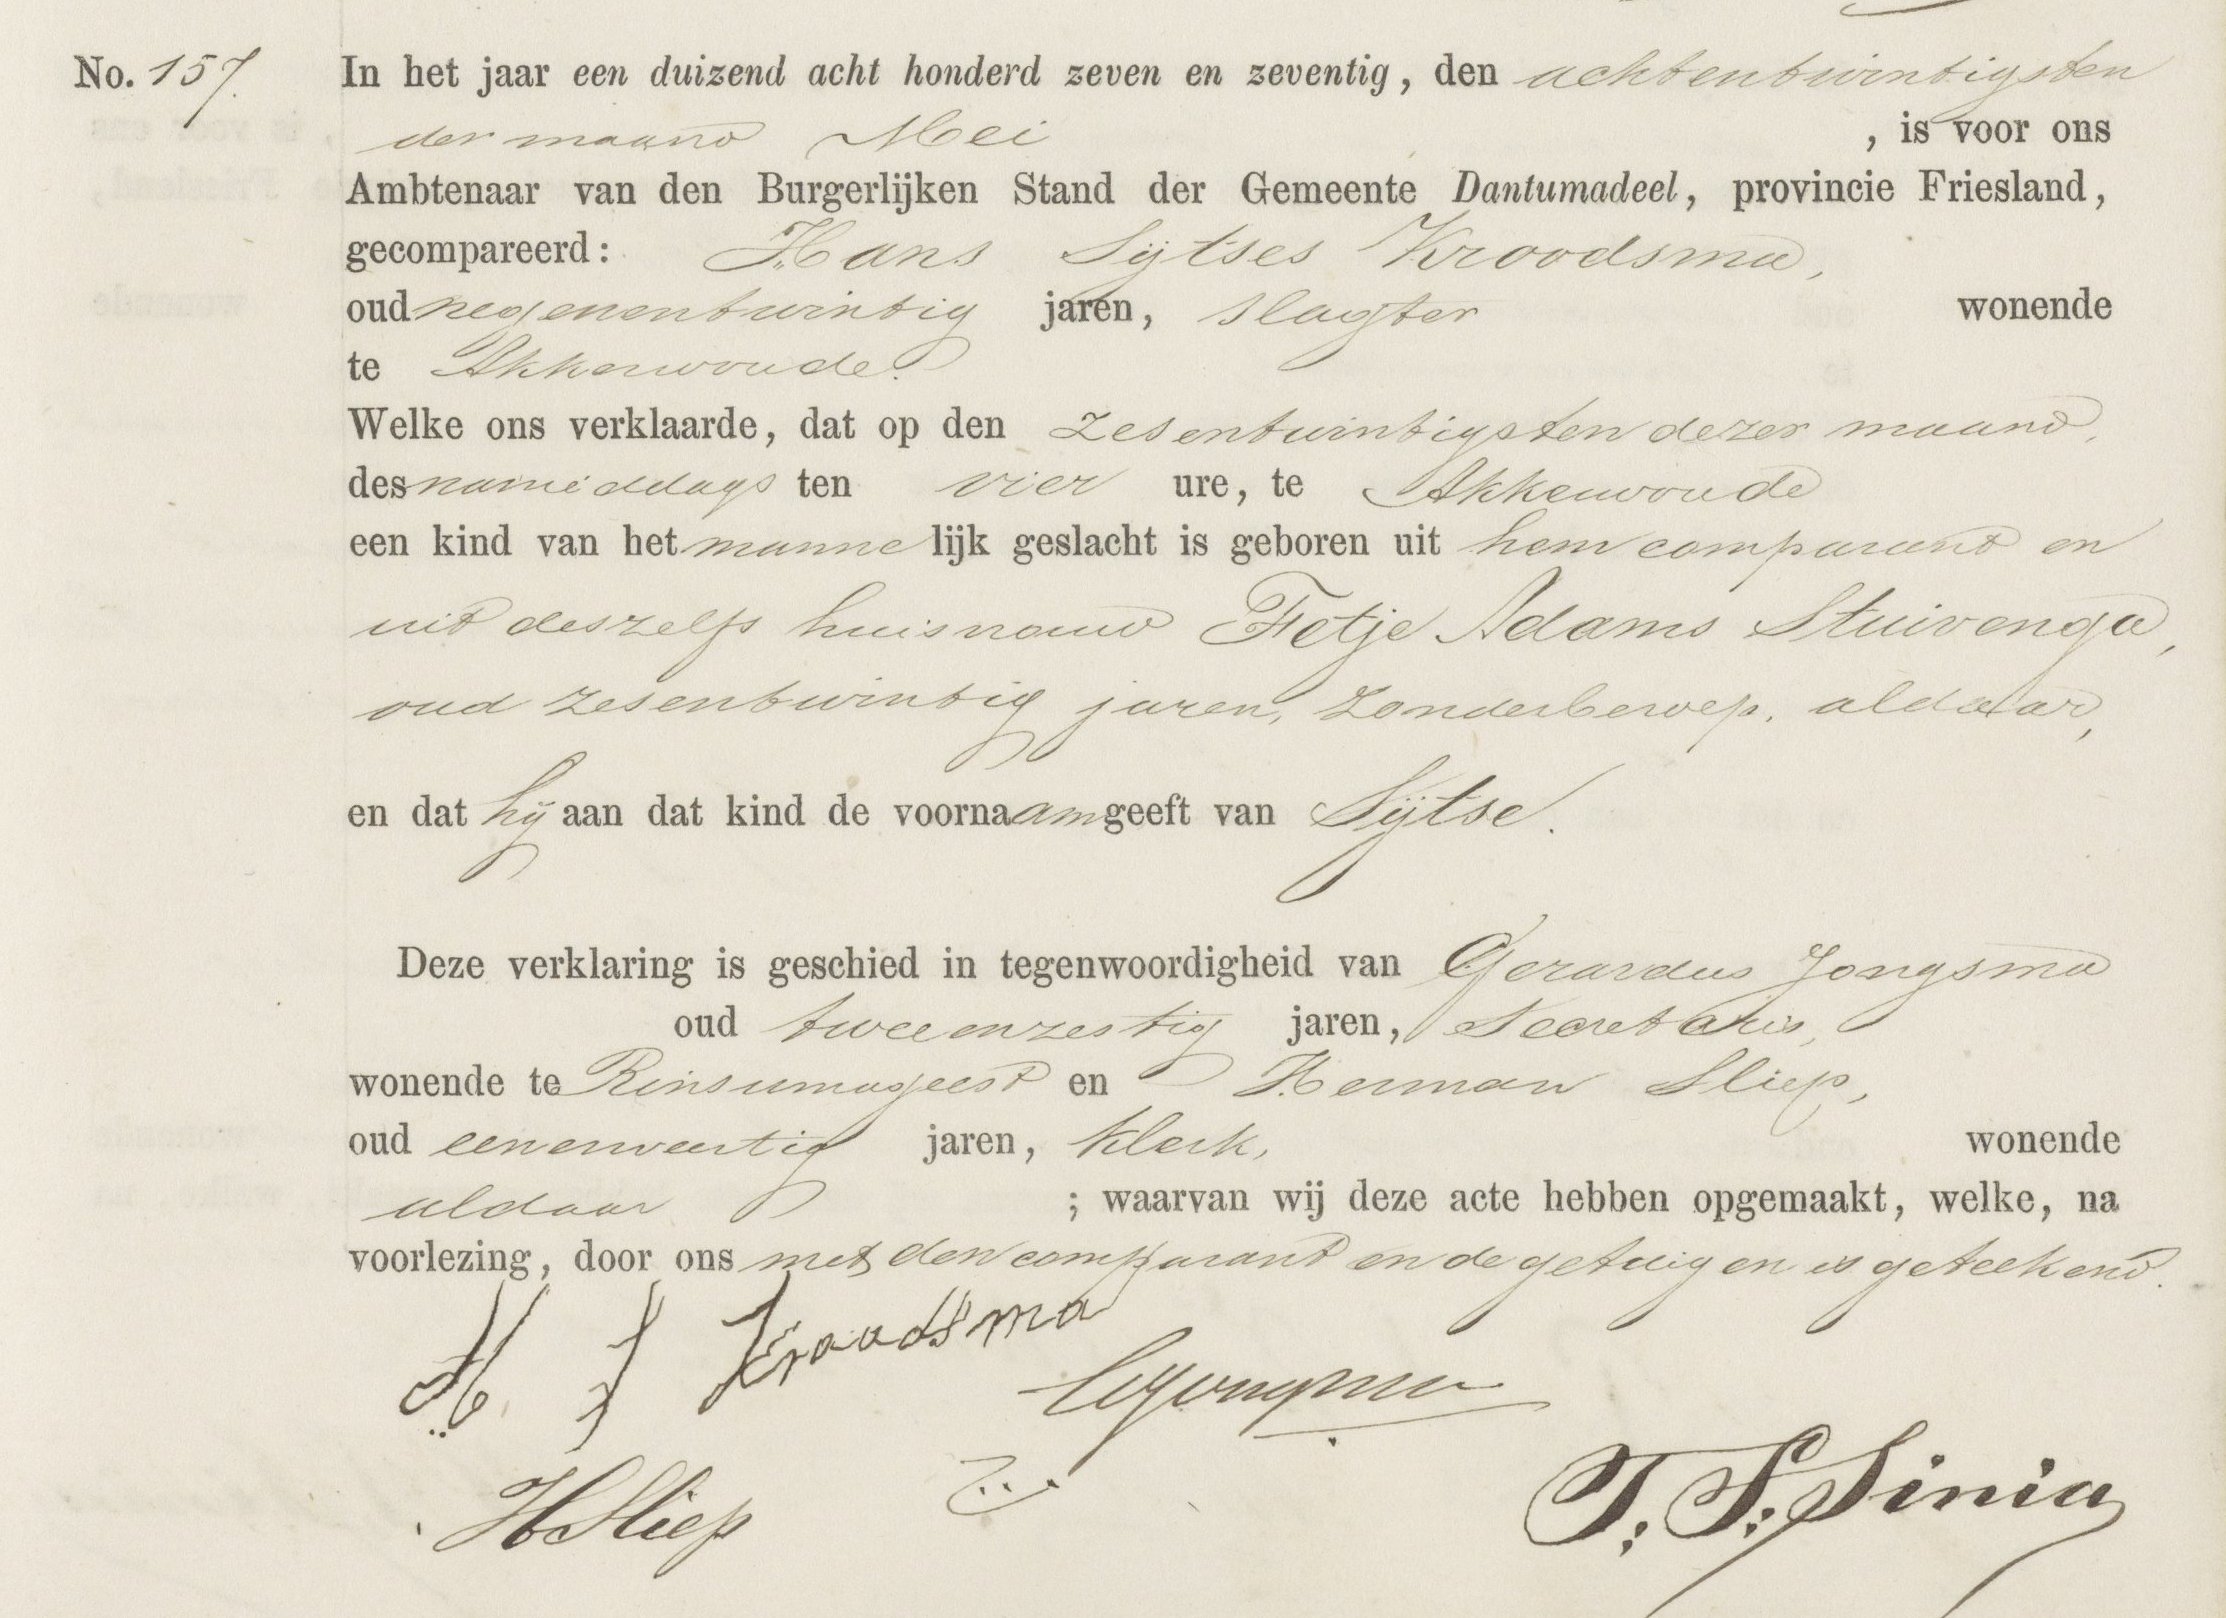 No. 157. In het jaar een duizend acht honderd zeven en zeventig, den achtentwintigsten
der maand Mei , is voor ons
Ambtenaar van den Burgerlijken Stand der Gemeente Dantumadeel, provincie Friesland,
gecompareerd: Hans Sijtses Kroodsma,
oud negenentwintig jaren, slagter wonende
te Akkerwoude.
Welke ons verklaarde, dat op den zesentwintigsten dezer maand,
des namiddags ten vier ure, te Akkerwoude
een kind van het manne lijk geslacht is geboren uit hem comparant en
uit deszelfs huisvrouw Fetje Adams Stuivenga,
oud zesentwintig jaren, zonder beroep, aldaar,
en dat hij aan dat kind de voornaam geeft van Sijtse.
Deze verklaring is geschied in tegenwoordigheid van Gerardus Jongsma
oud tweeenzestig jaren, Secretaris,
wonende te Rinsumageest en Herman Sliep,
oud eenenveertig jaren, klerk, wonende
aldaar ; waarvan wij deze acte hebben opgemaakt, welke, na
voorlezing, door ons met den comparant en de getuigen is geteekend.
H S Kroodsma
GJongsma
HSliep
T. S. Sinia